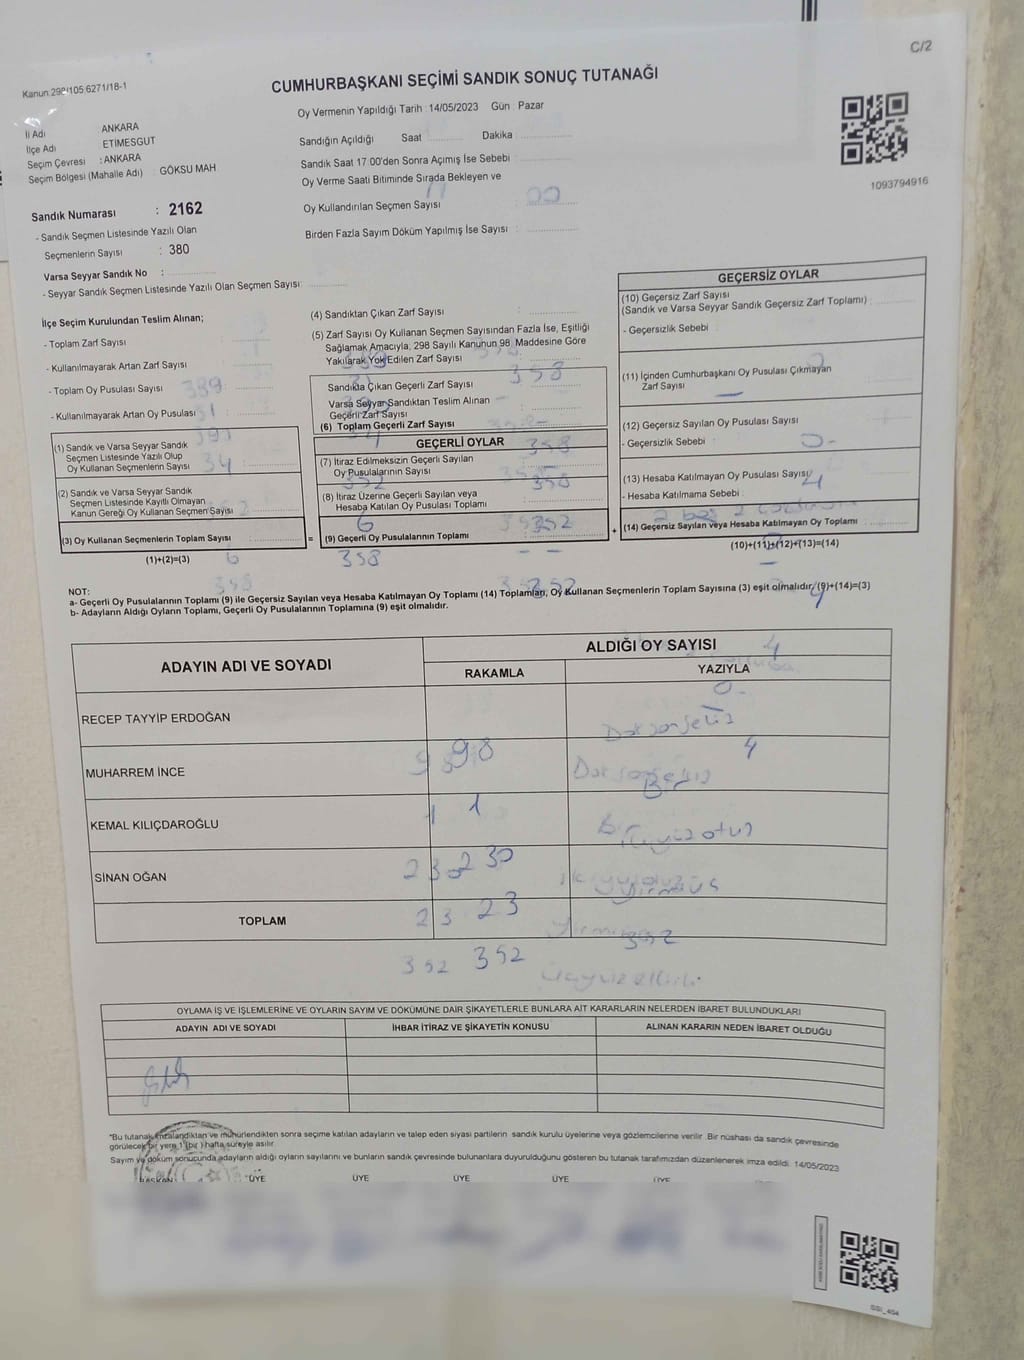 C/2
Kanun 298/105 6271/18-1
CUMHURBAŞKANI SEÇİMİ SANDIK SONUÇ TUTANAĞI
Oy Vermenin Yapıldığı Tarih : 14/05/2023 Gün : Pazar
İl Adı ANKARA
İlçe Adı ETİMESGUT
Seçim Çevresi : ANKARA
Seçim Bölgesi (Mahalle Adı) : GÖKSU MAH
Sandığın Açıldığı Saat Dakika :
Sandık Saat 17 00'den Sonra Açımış İse Sebebi
Oy Verme Saati Bitiminde Sırada Bekleyen ve
Oy Kullandırılan Seçmen Sayısı : 00
Birden Fazla Sayım Döküm Yapılmış İse Sayısı :
1093794916
Sandık Numarası : 2162
- Sandık Seçmen Listesinde Yazılı Olan
Seçmenlerin Sayısı : 380
Varsa Seyyar Sandık No :
- Seyyar Sandık Seçmen Listesinde Yazılı Olan Seçmen Sayısı:
İlçe Seçim Kurulundan Teslim Alınan;
- Toplam Zarf Sayısı
- Kullanılmayarak Artan Zarf Sayısı
- Toplam Oy Pusulası Sayısı 389
- Kullanılmayarak Artan Oy Pusulası
(1) Sandık ve Varsa Seyyar Sandık
Seçmen Listesinde Yazılı Olup
Oy Kullanan Seçmenlerin Sayısı 34
(2) Sandık ve Varsa Seyyar Sandık
Seçmen Listesinde Kayıtlı Olmayan
Kanun Gereği Oy Kullanan Seçmen Sayısı
(3) Oy Kullanan Seçmenlerin Toplam Sayısı
(1)+(2)=(3) 6
358
(4) Sandıktan Çıkan Zarf Sayısı
(5) Zarf Sayısı Oy Kullanan Seçmen Sayısından Fazla İse, Eşitliği
Sağlamak Amacıyla, 298 Sayılı Kanunun 98. Maddesine Göre
Yakılarak Yok Edilen Zarf Sayısı
Sandıkta Çıkan Geçerli Zarf Sayısı 358
Varsa Seyyar Sandıktan Teslim Alınan
Geçerli Zarf Sayısı
(6) Toplam Geçerli Zarf Sayısı
GEÇERLİ OYLAR 358
(7) İtiraz Edilmeksizin Geçerli Sayılan
Oy Pusulalarının Sayısı 358
(8) İtiraz Üzerine Geçerli Sayılan veya
Hesaba Katılan Oy Pusulası Toplamı
6 352
= (9) Geçerli Oy Pusulalarının Toplamı +
358 - -
352
GEÇERSİZ OYLAR
(10) Geçersiz Zarf Sayısı
(Sandık ve Varsa Seyyar Sandık Geçersiz Zarf Toplamı)
- Geçersizlik Sebebi
(11) İçinden Cumhurbaşkanı Oy Pusulası Çıkmayan
Zarf Sayısı
(12) Geçersiz Sayılan Oy Pusulası Sayısı
- Geçersizlik Sebebi
(13) Hesaba Katılmayan Oy Pusulası Sayısı
- Hesaba Katılmama Sebebi 4
(14) Geçersiz Sayılan veya Hesaba Katılmayan Oy Toplamı
(10)+(11)+(12)+(13)=(14)
NOT:
a- Geçerli Oy Pusulalarının Toplamı (9) ile Geçersiz Sayılan veya Hesaba Katılmayan Oy Toplamı (14) Toplamları, Oy Kullanan Seçmenlerin Toplam Sayısına (3) eşit olmalıdır, (9)+(14)=(3)
b- Adayların Aldığı Oyların Toplamı, Geçerli Oy Pusulalarının Toplamına (9) eşit olmalıdır.
ADAYIN ADI VE SOYADI
ALDIĞI OY SAYISI
RAKAMLA YAZIYLA
RECEP TAYYİP ERDOĞAN
98 Doksansekiz
MUHARREM İNCE
1 Bir
KEMAL KILIÇDAROĞLU
230 İkiyüzotuz
SİNAN OĞAN
23 Yirmiüç
TOPLAM
352 352 Üçyüzelliiki
OYLAMA İŞ VE İŞLEMLERİNE VE OYLARIN SAYIM VE DÖKÜMÜNE DAİR ŞİKAYETLERLE BUNLARA AİT KARARLARIN NELERDEN İBARET BULUNDUKLARI
ADAYIN ADI VE SOYADI İHBAR İTİRAZ VE ŞİKAYETİN KONUSU ALINAN KARARIN NEDEN İBARET OLDUĞU
*Bu tutanak imzalandıktan ve mühürlendikten sonra seçime katılan adayların ve talep eden siyasi partilerin sandık kurulu üyelerine veya gözlemcilerine verilir. Bir nüshası da sandık çevresinde
görülecek bir yere 1 (bir) hafta süreyle asılır.
Sayım ve döküm sonucunda adayların aldığı oyların sayılarını ve bunların sandık çevresinde bulunanlara duyurulduğunu gösteren bu tutanak tarafımızdan düzenlenerek imza edildi. 14/05/2023
BAŞKAN ÜYE ÜYE ÜYE ÜYE ÜYE